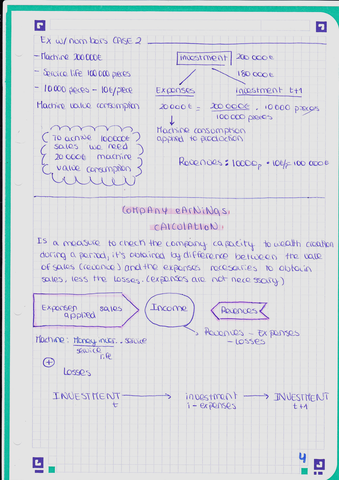 Ex w/ numbers CASE 2
- Machine 200 000€
- Service life 100 000 pieces
- 10 000 pieces - 10€/piece
Machine value consumption
To achive 100000€
sales we need
20 000€ machine
value consumption
investment t 200 000€
180 000€
Expenses investment t+1
20 000€ = 200 000€ / 100 000 pieces · 10 000 pieces
Machine consumption
applied to production
Revenues: 10000p · 10€/p = 100 000€
COMPANY EARNINGS
CALCULATION
Is a measure to chech the company capacity to wealth creation
during a period, it's obtained by difference between the value
of sales (revenue) and the expenses necesaries to obtain
sales, less the losses. (expenses are not necessary)
Expenses sales
applied
Income
Revenues
Revenues - Expenses
- Losses
Machine: Money inver. · service
service
life
+
Losses
INVESTMENT t
investment
i - expenses
INVESTMENT
t+1
4